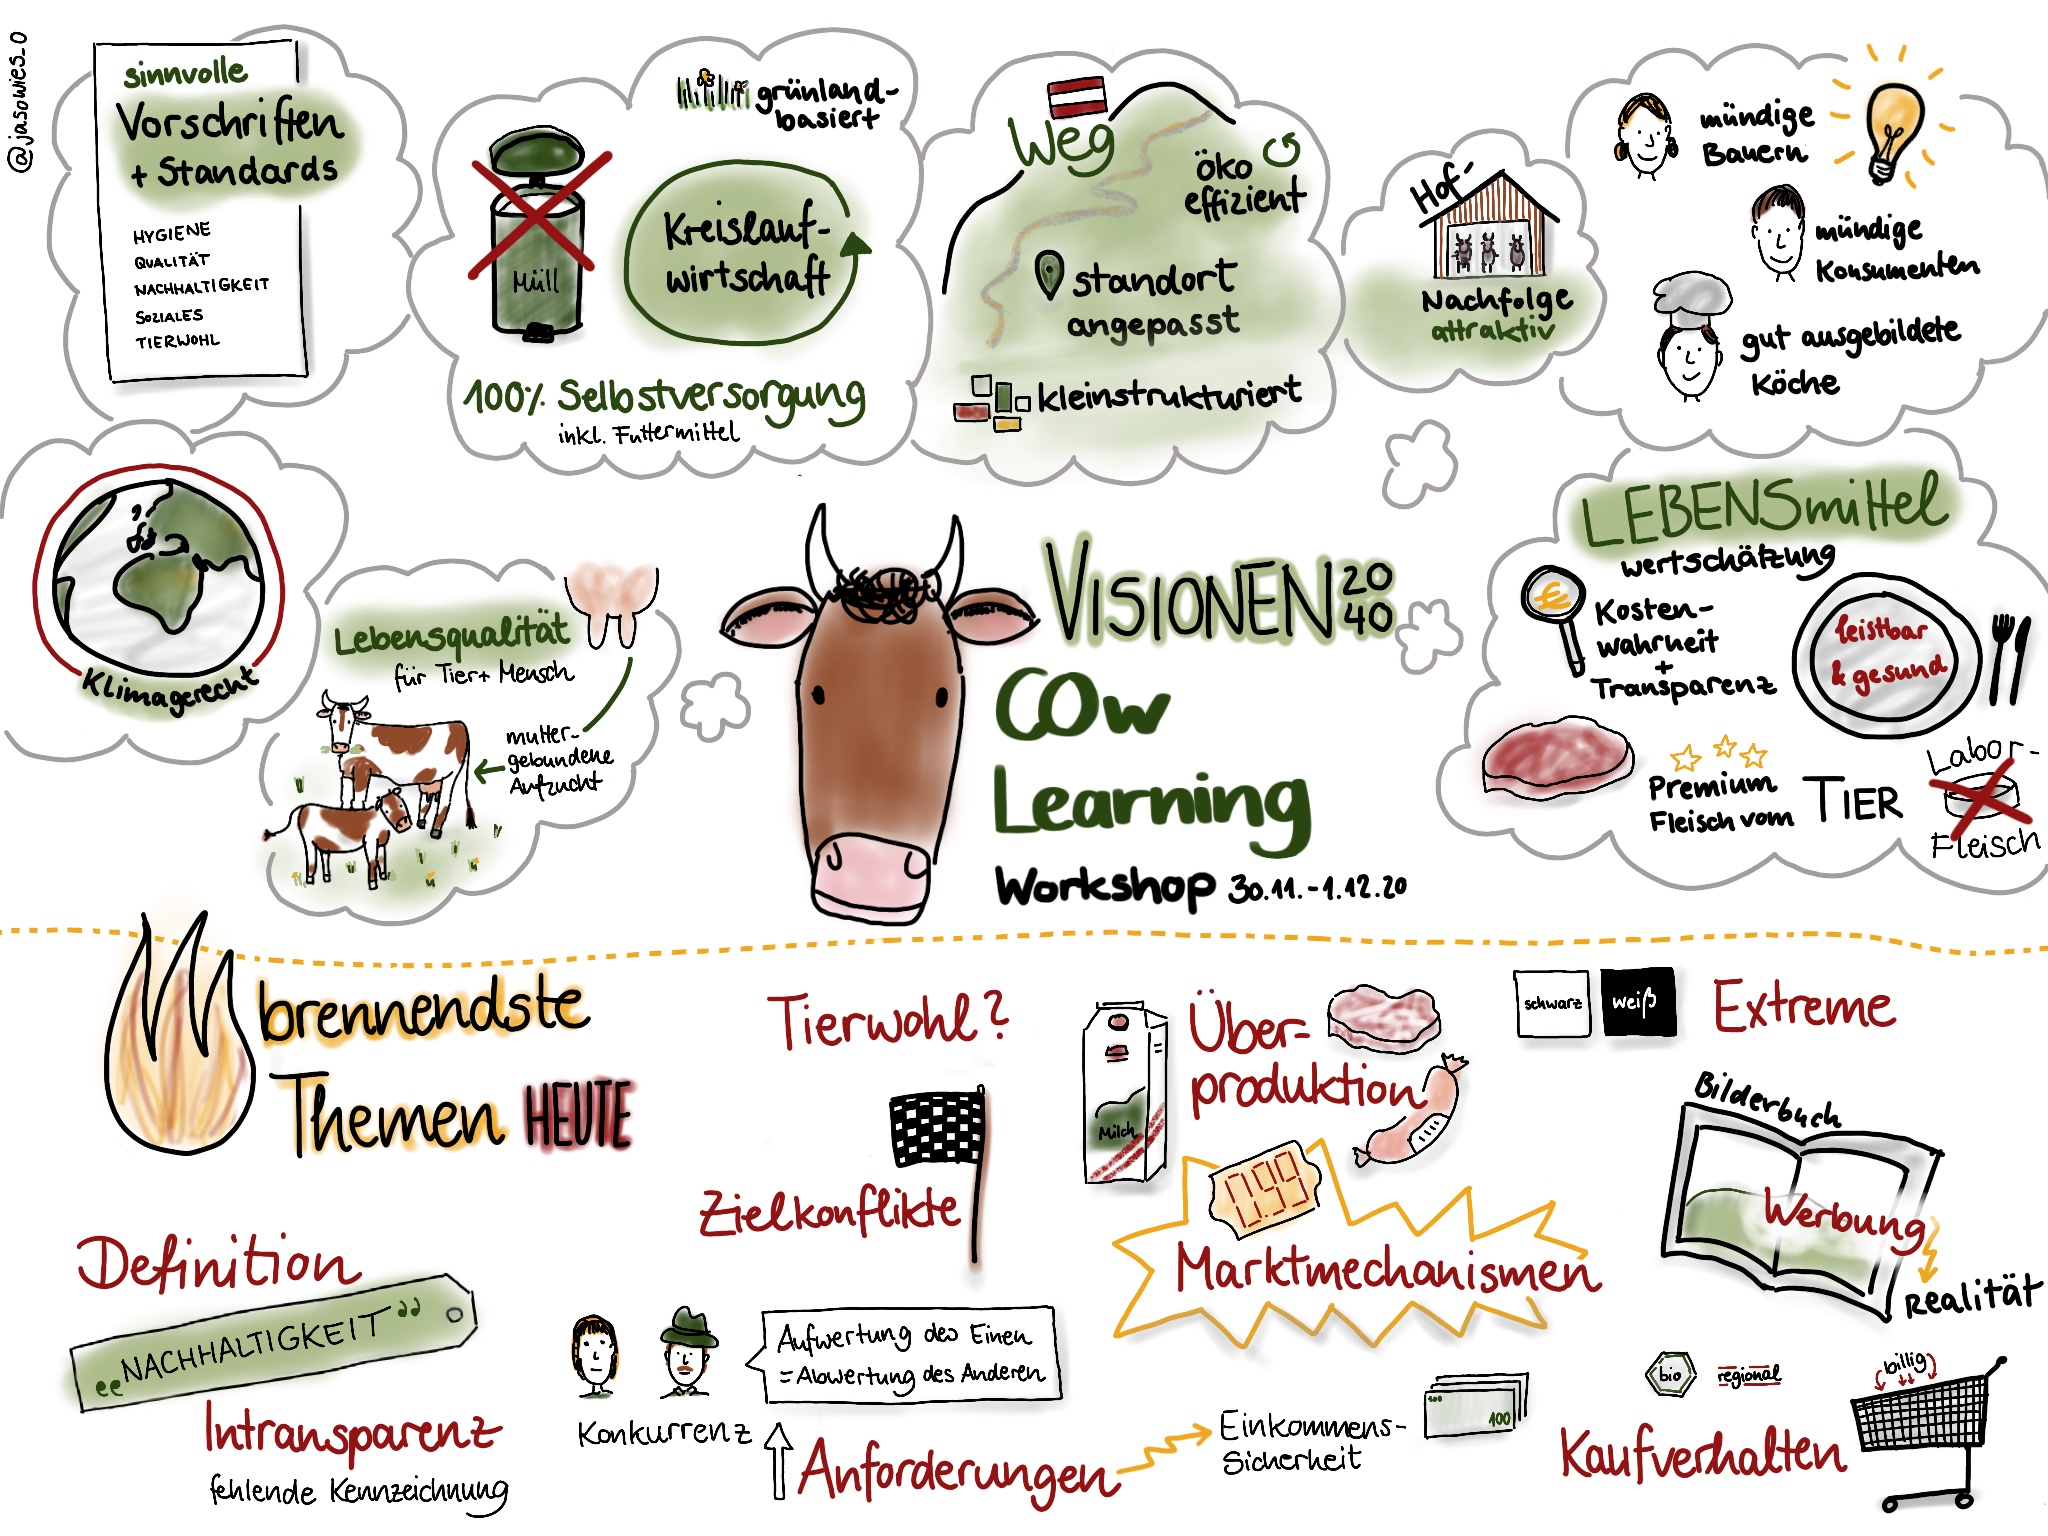 @jasowies_o
sinnvolle
Vorschriften
+ Standards
HYGIENE
QUALITÄT
NACHHALTIGKEIT
SOZIALES
TIERWOHL
grünland-
basiert
Müll
Kreislauf-
wirtschaft
100% Selbstversorgung
inkl. Futtermittel
Weg
öko
effizient
standort
angepasst
kleinstrukturiert
Hof-
Nachfolge
attraktiv
mündige
Bauern
mündige
Konsumenten
gut ausgebildete
Köche
Klimagerecht
Lebensqualität
für Tier + Mensch
mutter-
gebundene
Aufzucht
VISIONEN 20
40
COw
Learning
Workshop 30.11.-1.12.20
LEBENSmittel
wertschätzung
€
Kosten-
wahrheit
+
Transparenz
leistbar
& gesund
Premium
Fleisch vom TIER
Labor-
Fleisch
brennendste
Themen HEUTE
Tierwohl?
Milch
Über-
produktion
schwarz
weiß
Extreme
Zielkonflikte
0.99
Marktmechanismen
Bilderbuch
Werbung
Realität
Definition
„NACHHALTIGKEIT"
Intransparenz
fehlende Kennzeichnung
Aufwertung des Einen
= Abwertung des Anderen
Konkurrenz
Anforderungen
Einkommens-
Sicherheit
100
100
bio
regional
billig
Kaufverhalten